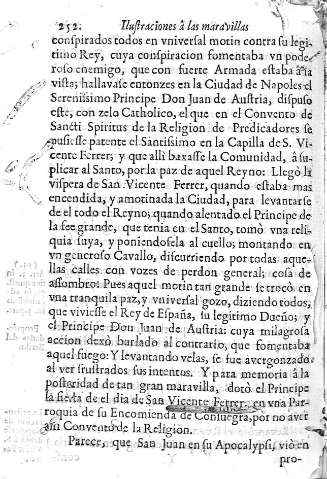 252. Ilustraciones à las maravillas
conspirados todos en vniversal motin contra su legi-
timo Rey, cuya conspiracion fomentaba vn pode-
roso enemigo, que con fuerte Armada estaba à la
vista; hallavase entonzes en la Ciudad de Napoles el
Serenissimo Principe Don Juan de Austria, dispuso
este, con zelo Catholico, el que en el Convento de
Sancti Spiritus de la Religion de Predicadores se
pusiesse patente el Santissimo en la Capilla de S. Vi-
cente Ferrer; y que alli baxasse la Comunidad, à su-
plicar al Santo, por la paz de aquel Reyno: Llegò la
vispera de San Vicente Ferrer, quando estaba mas
encendida, y amotinada la Ciudad, para levantarse
de el todo el Reyno; quando alentado el Principe de
la fee grande, que tenia en el Santo, tomò vna reli-
quia suya, y poniendosela al cuello; montando en
vn generoso Cavallo, discurriendo por todas aque-
llas calles con vozes de perdon general; cosa de
assombro! Pues aquel motin tan grande se trocò en
vna tranquila paz, y vniversal gozo, diziendo todos,
que viviesse el Rey de España, su legitimo Dueño; y
el Principe Don Juan de Austria: cuya milagrosa
accion dexò burlado al contrario, que fomentaba
aquel fuego: Y levantando velas, se fue avergonzado
al ver frustrados sus intentos. Y para memoria à la
posteridad de tan gran maravilla, dotò el Principe
la fiesta de el dia de San Vicente Ferrer, en vna Par-
roquia de su Encomienda de Consuegra, por no aver
alli Convento de la Religion.
Parece, que San Juan en su Apocalypsi, viò en
pro-